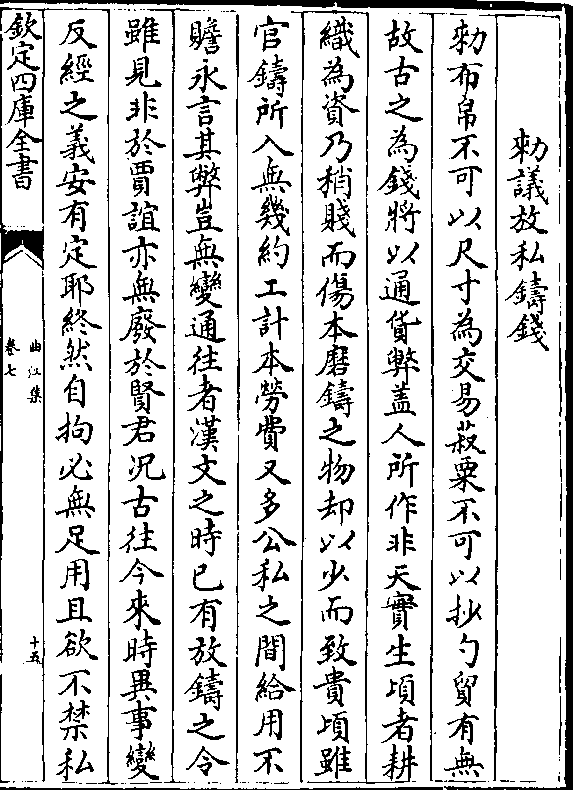 勅議放私鑄錢
勅布帛不可以尺寸為交易菽粟不可以抄勺貿有無
故古之為錢將以通貨幣盖人所作非天實生頃者耕
織為資乃稍賤而傷本磨鑄之物却以少而致貴頃雖
官鑄所入無幾約工計本勞費又多公私之間給用不
贍永言其弊豈無變通往者漢文之時已有放鑄之令
雖見非於賈誼亦無廢於賢君况古往今來時異事變
反經之義安有定耶終然自拘必無足用且欲不禁私
欽定四庫全書
曲江集
卷七
十五